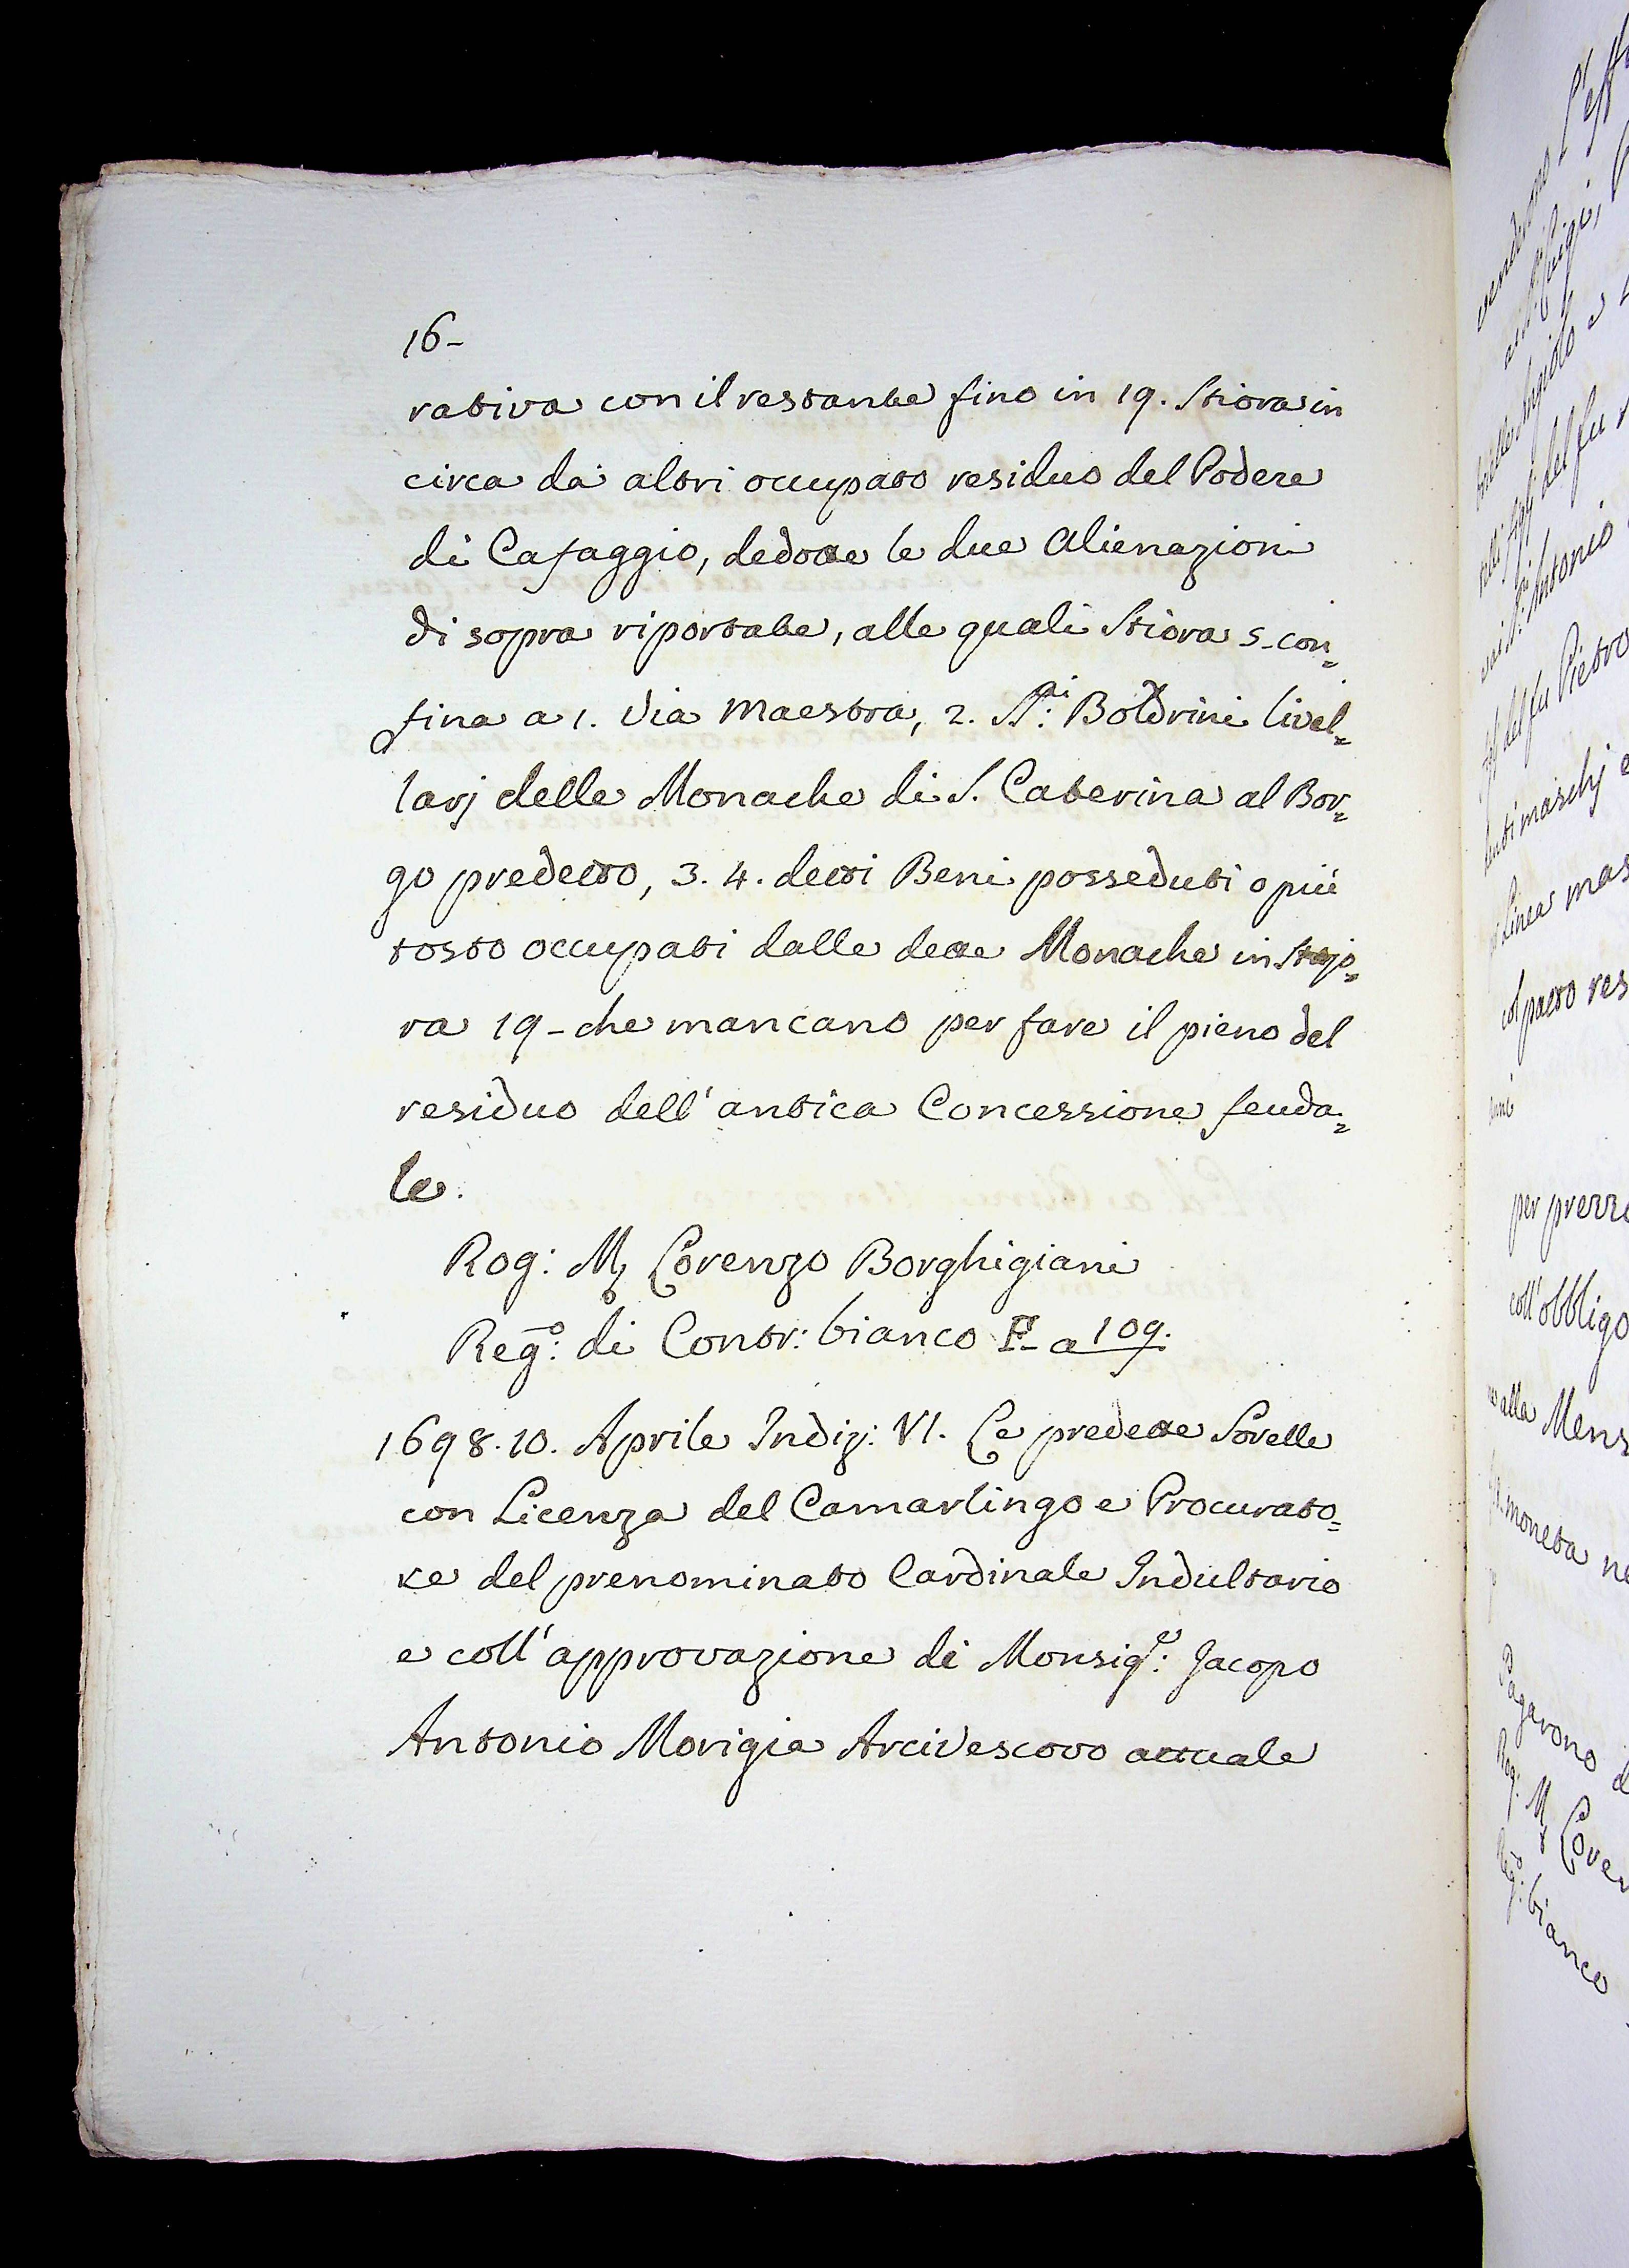 16-
rativa con il restante fino in 19. Stiora in
circa da altri occupato residuo del Podere
di Cafaggio, dedotte le due Alienazioni
di sopra riportate, alle quali Stiora 5- con=
fina a 1. Via Maestra, 2. SS.ri Boldrini livel=
larj delle Monache di S. Caterina al Bor=
go predetto, 3. 4. detti Beni posseduti o più
tosto occupati dalle dette Monache in Stajo=
ra 19- che mancano per fare il pieno del
residuo dell'antica Concessione feuda=
le.
Rog: M Lorenzo Borghigiani
Reg.o: di Contr: bianco P.o a 109.
1698. 10. Aprile Indiz: VI. Le predette Sorelle
con Licenza del Camarlingo e Procurato=
re del prenominato Cardinale Indultario
e coll'approvazione di Monsig.e: Jacopo
Antonio Morigia Arcivescovo attuale
vendérono
del fu Pietro
Linea mas
col patto res
per prezzo
coll'obbligo
alla Mens
moneta ne
Pagarono d
Rog: M Loren
Reg.o: bianco